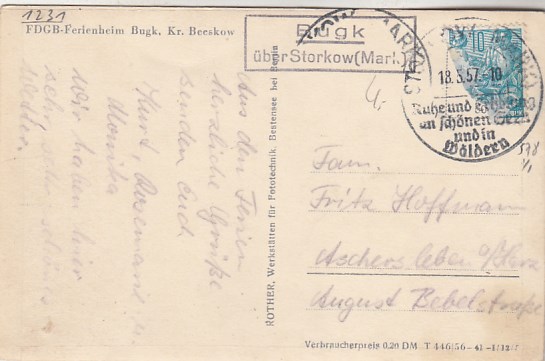 1231
FDGB-Ferienheim Bugk, Kr. Beeskow
Bugk
über Storkow (Mark)
STORKOW (MARK)
18.5.57.-10
Ruhe und
an schönen Seen
und in
Wäldern
10
Aus den Ferien
herzliche Grüße
senden euch
Kurt, Rosemarie u.
Monika
Wir haben hier
sehr, sehr schönes
Wetter.
ROTHER, Werkstätten für Fototechnik, Bestensee bei Berlin
Fam.
Fritz Hoffmann
Aschersleben a/Harz
August Bebelstraße
Verbraucherpreis 0.20 DM T 446/56